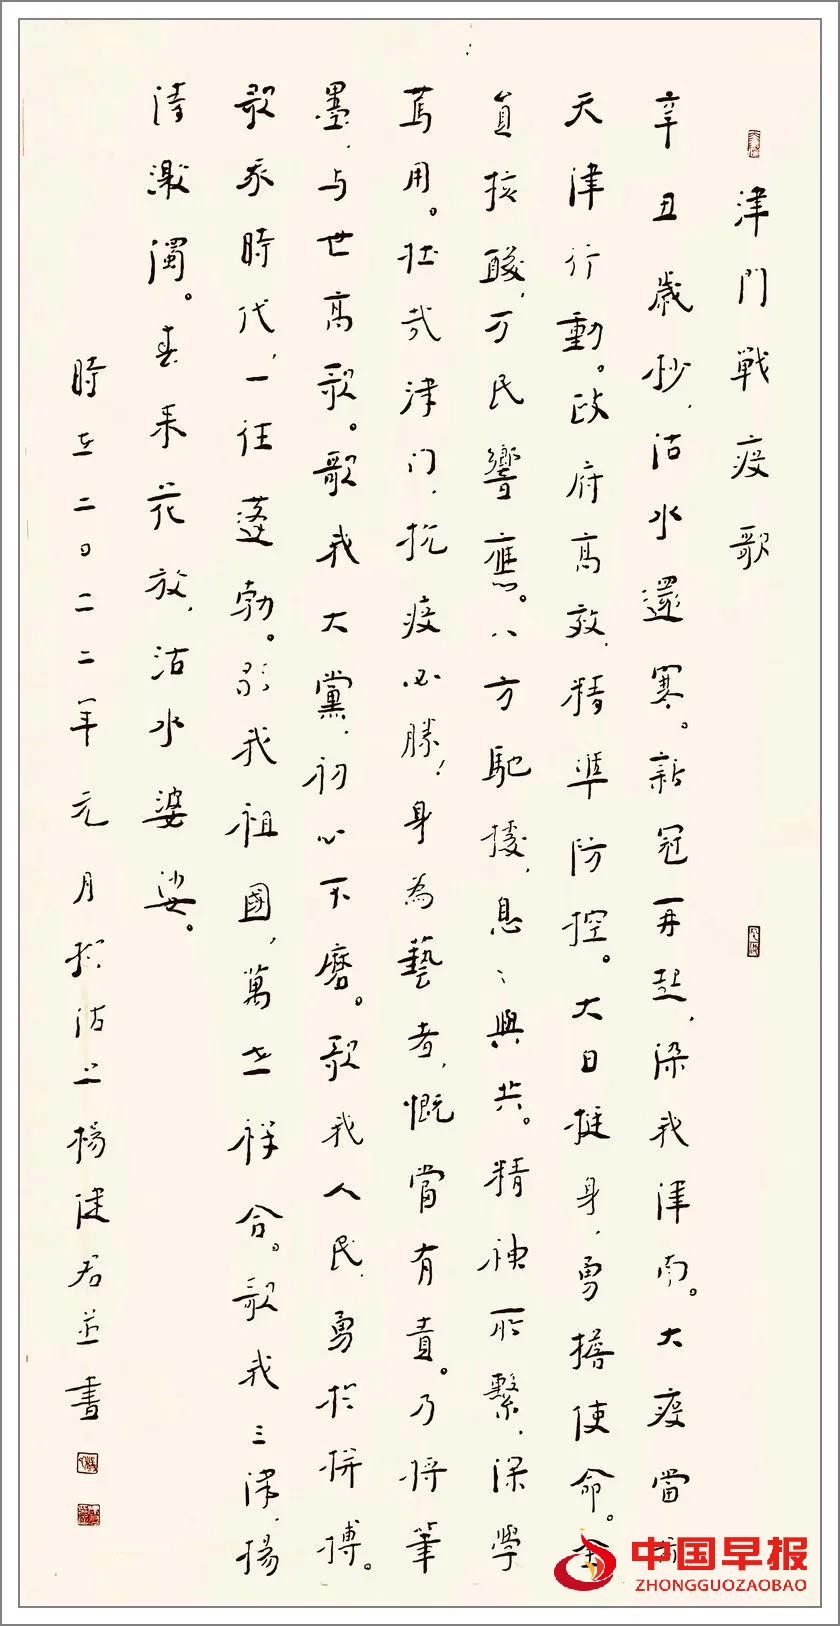 津門戦疫歌
辛丑歲杪，沽水還寒。新冠再起，染我津南。大疫當前
天津行動。政府高效，精準防控。大白挺身，勇擔使命。全
員核酸，万民響應。八方馳援，息〻與共。精神所繫，深學
篤用。壯哉津门，抗疫必勝！身為藝者，慨當有責。乃將筆
墨，与世高歌。歌我大黨，初心不磨。歌我人民，勇於拼搏。
歌我時代，一往蓬勃。歌我祖國，萬世祥合。歌我三津，揚
清激濁。春來花放，沽水婆娑。
時在二〇二二年元月於沽上楊健君並書
中国早报
ZHONGGUOZAOBAO